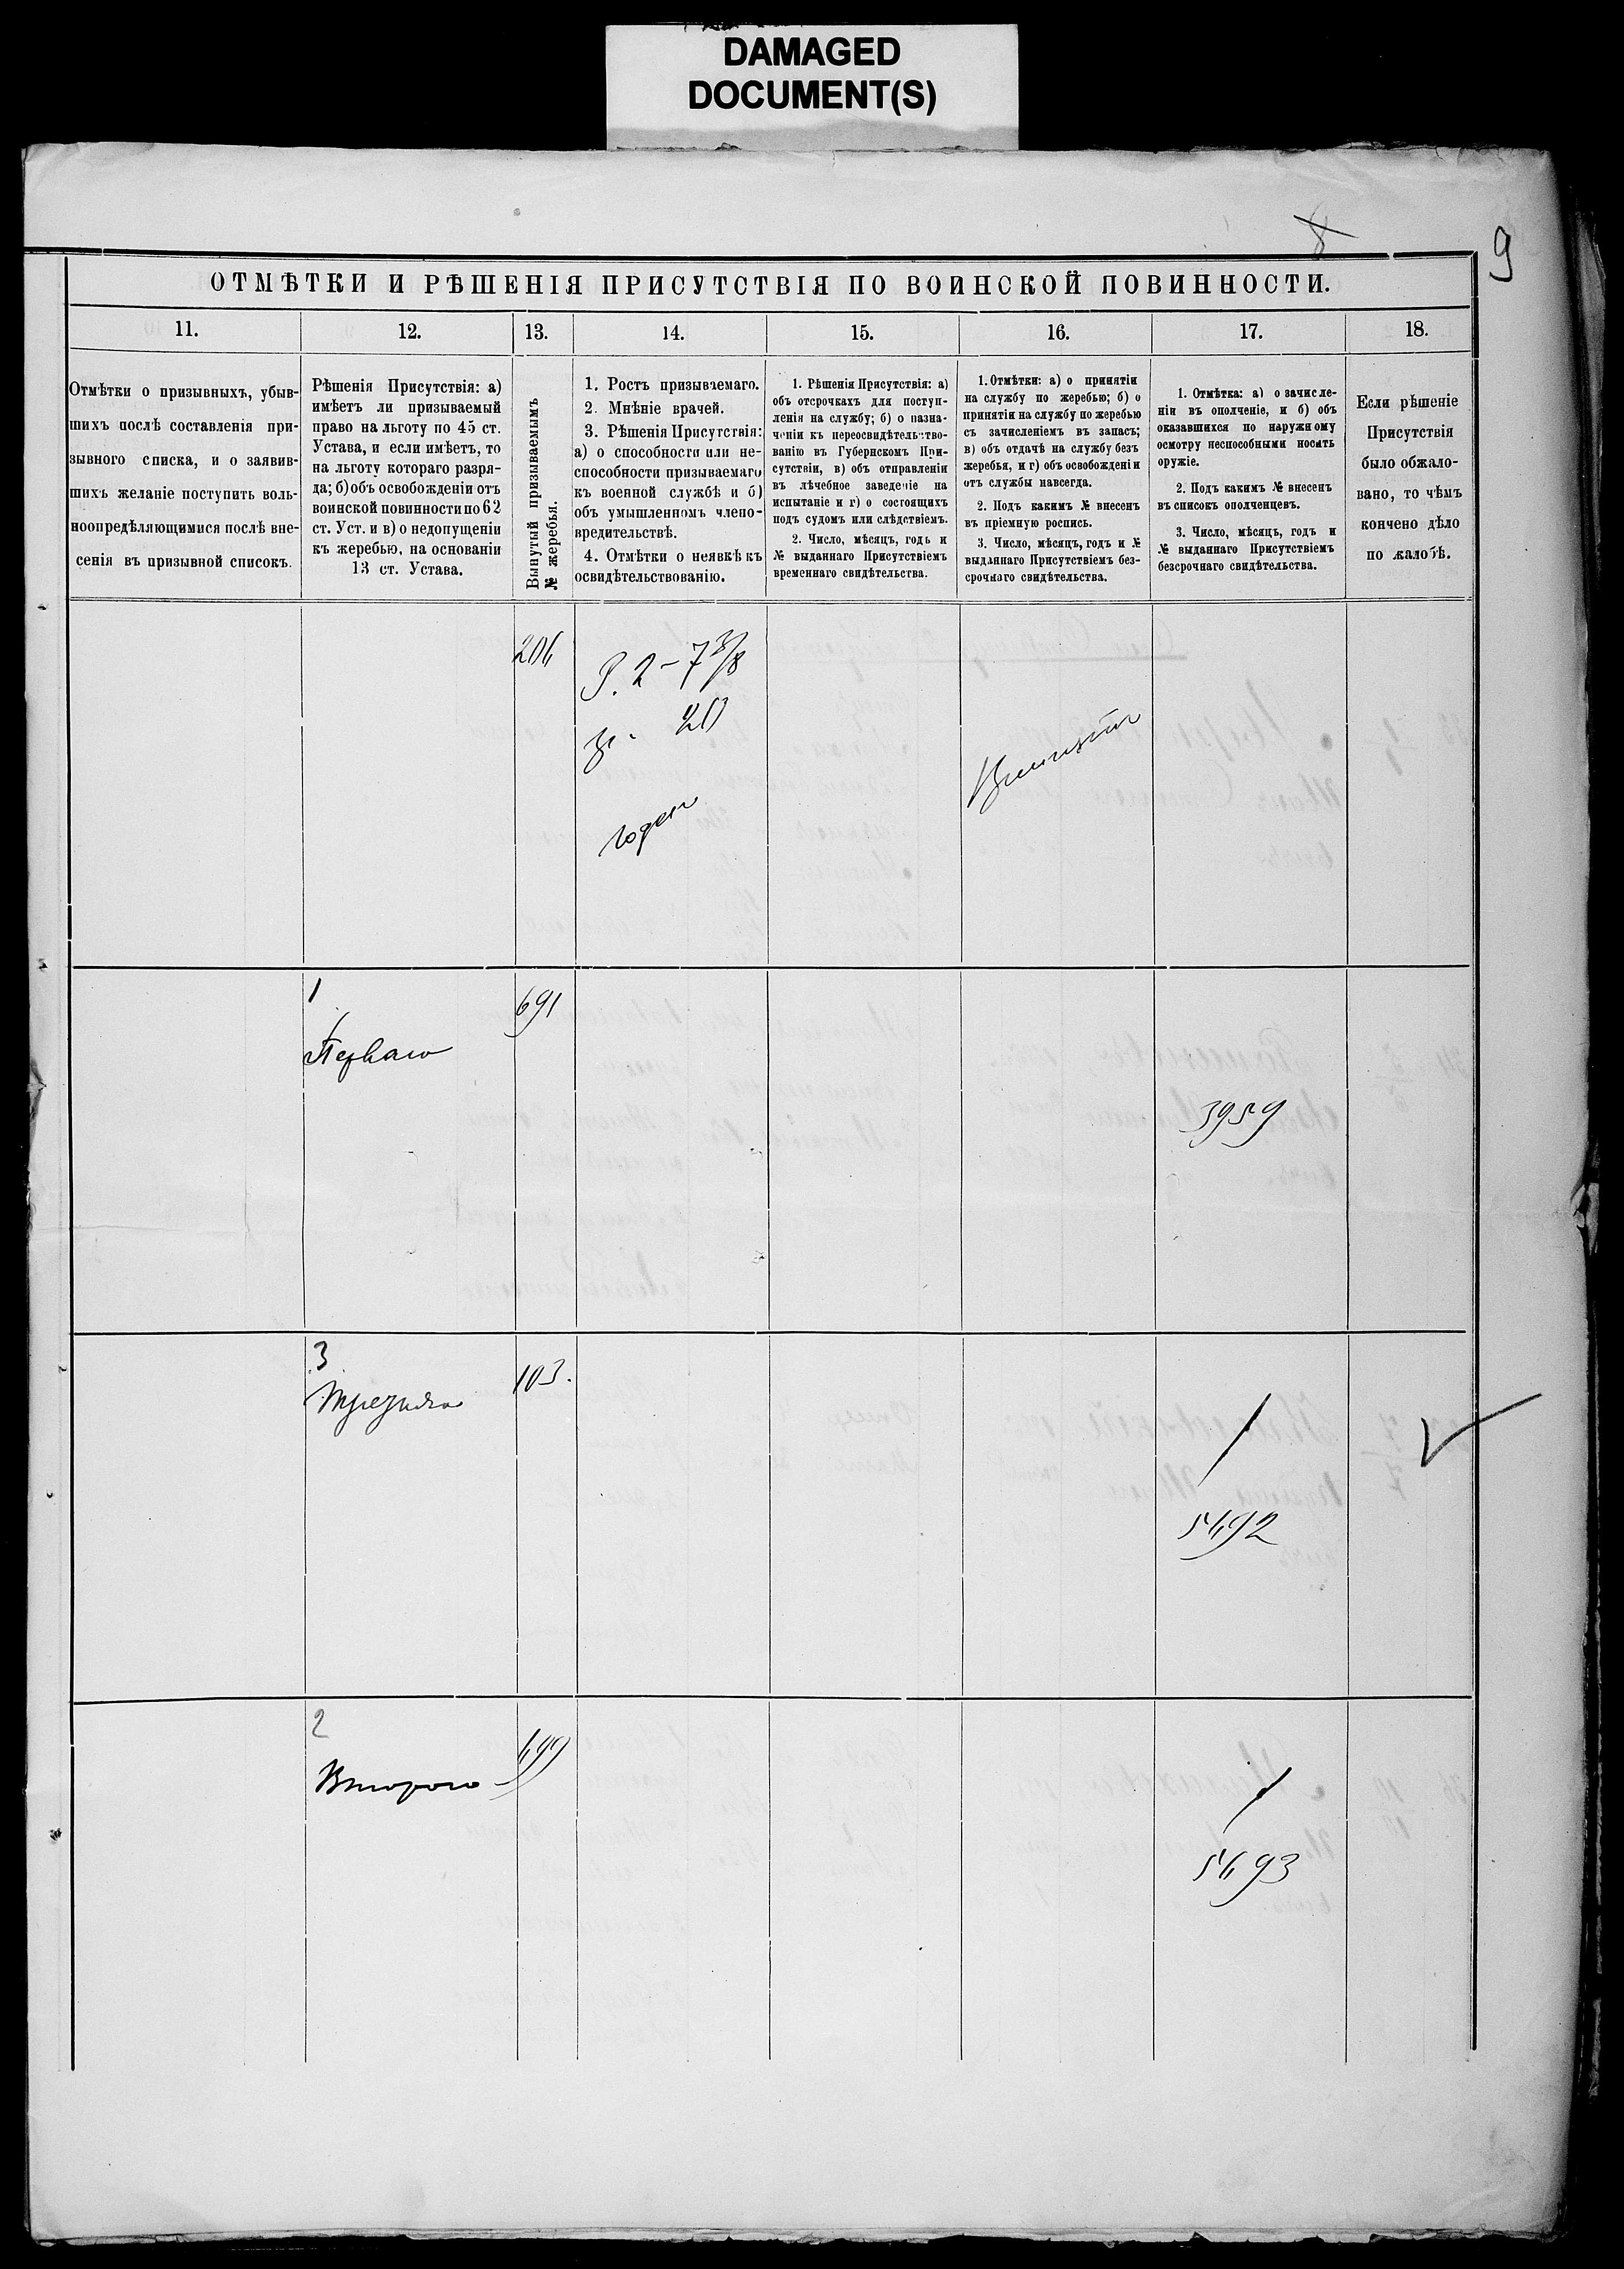 DAMAGED
DOCUMENT(S)
8
9
ОТМѢТКИ И РѢШЕНІЯ ПРИСУТСТВІЯ ПО ВОИНСКОЙ ПОВИННОСТИ.
11.
12.
13.
14.
15.
16.
17.
18.
Отмѣтки о призывныхъ, убыв-
шихъ послѣ составленія при-
зывного списка, и о заявив-
шихъ желаніе поступить воль-
ноопредѣляющимися послѣ вне-
сенія въ призывной списокъ.
Рѣшенія Присутствія: а)
имѣетъ ли призываемый
право на льготу по 45 ст.
Устава, и если имѣетъ, то
на льготу котораго разря-
да; б) объ освобожденіи отъ
воинской повинности по 62
ст. Уст. и в) о недопущеніи
къ жеребью, на основаніи
13 ст. Устава.
Вынутый призываемымъ
№ жеребья.
1. Ростъ призываемаго.
2. Мнѣніе врачей.
3. Рѣшенія Присутствія:
а) о способности или не-
способности призываемаго
къ военной службѣ и б)
объ умышленномъ члено-
вредительствѣ.
4. Отмѣтки о неявкѣ къ
освидѣтельствованію.
1. Рѣшенія Присутствія: а)
объ отсрочкахъ для поступ-
ленія на службу; б) о назна-
ченіи къ переосвидѣтельство-
ванію въ Губернскомъ При-
сутствіи, в) объ отправленіи
въ лѣчебное заведеніе на
испытаніе и г) о состоящихъ
подъ судомъ или слѣдствіемъ.
2. Число, мѣсяцъ, годъ и
№ выданнаго Присутствіемъ
временнаго свидѣтельства.
1. Отмѣтки: а) о принятіи
на службу по жеребью; б) о
принятіи на службу по жеребью
съ зачисленіемъ въ запасъ;
в) объ отдачѣ на службу безъ
жеребья, и г) объ освобожденіи
отъ службы навсегда.
2. Подъ какимъ № внесенъ
въ пріемную роспись.
3. Число, мѣсяцъ, годъ и №
выданнаго Присутствіемъ без-
срочнаго свидѣтельства.
1. Отмѣтка: а) о зачисле-
ніи въ ополченіе, и б) объ
оказавшихся по наружному
осмотру неспособными носить
оружіе.
2. Подъ какимъ № внесенъ
въ списокъ ополченцевъ.
3. Число, мѣсяцъ, годъ и
№ выданнаго Присутствіемъ
безсрочнаго свидѣтельства.
Если рѣшеніе
Присутствія
было обжало-
вано, то чѣмъ
кончено дѣло
по жалобѣ.
204
Р. 2 - 7 3/8
годен
1
691
Перваго
3959
3
103.
5492
2
499
Второго
5493